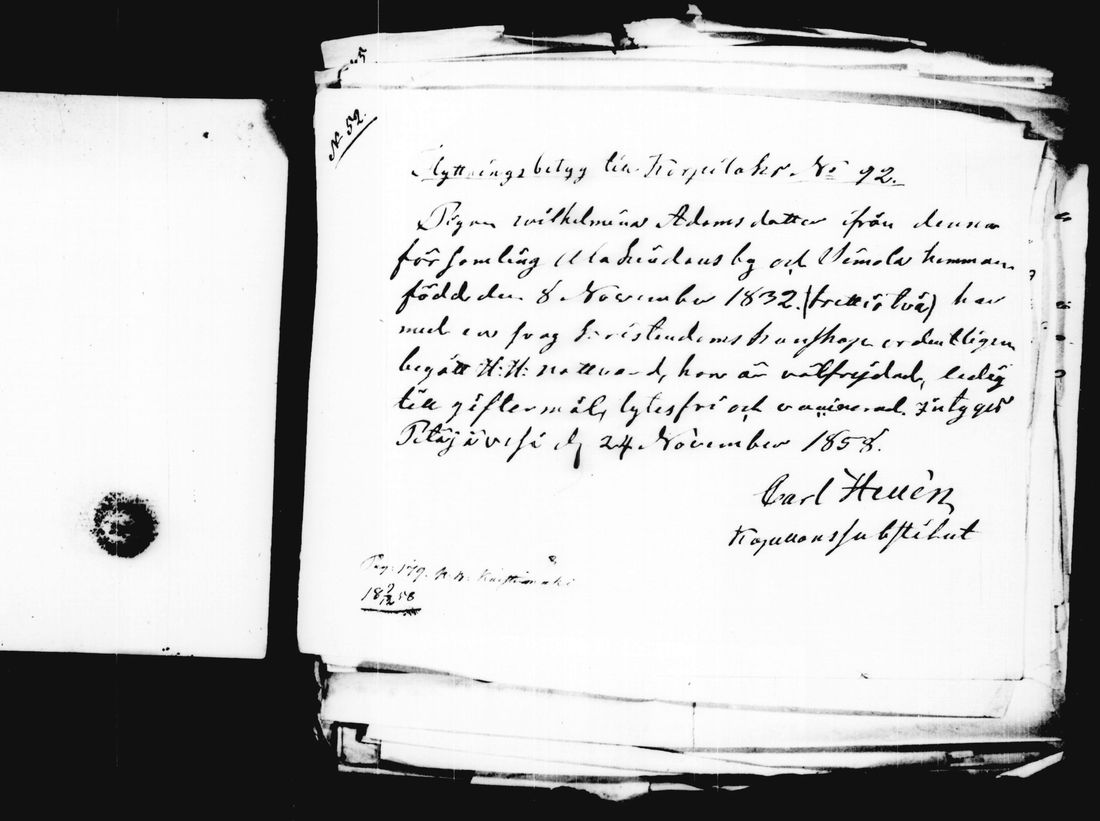 № 52.
Flyttningsbetyg till Korpilaks № 92.
Pigan Wilhelmina Adamsdotter ifrån denna
församling by och hemman
född den 8 November 1832. (trettiotvå) har
med en svag kristendoms kunskap ordentligen
begått H: H: nattvard, hon är välfrejdad, ledig
till giftermål, lytesfri och vaccinerad. Intygas
Petäjävesi d. 24 November 1858.
Carl
Kapellanssubstitut
Pag. 179.
18 58